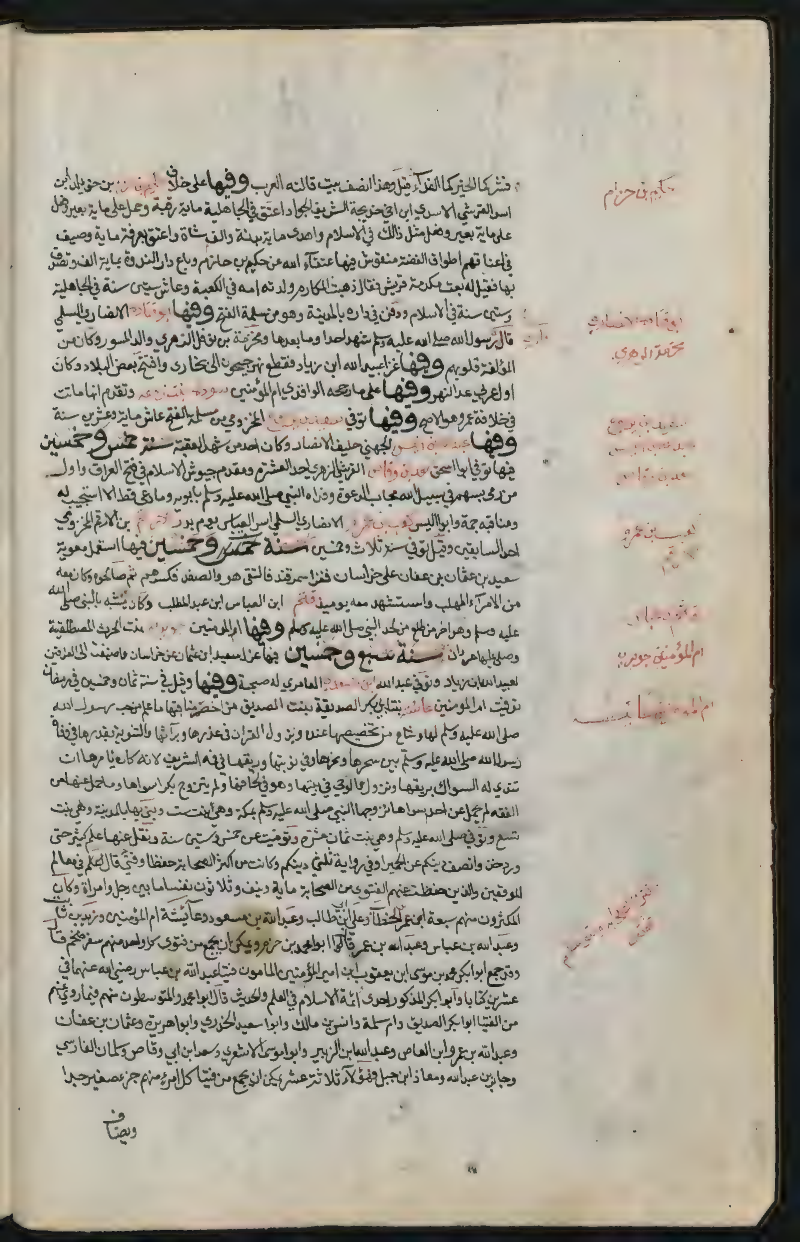 فشركما لخيركما الفداء قيل وهذا انصف بيت قالته العرب وفيها على خلاف بن خويلد ابن
اسد القرشي الاسدي ابن اخي خديجة الشريف الجواد اعتق في الجاهلية ماية رقبة وحمل على ماية بعير وحمل
على ماية بعير وفعل مثل ذلك في الاسلام واهدى ماية بدنة والف شاة واعتق بعرفة ماية وصيف
في اعناقهم اطواق الفضة منقوش فيها عتقاء الله عن حكيم بن حزام وباع دار الندوة بماية الف وتصدق
بها فقيل له بعت مكرمة قريش فقال ذهبت المكارم ولدته امه في الكعبة وعاش ستين سنة في الجاهلية
وستين سنة في الاسلام ودفن في داره بالمدينة وهو من مسلمة الفتح وفيها ابو قتادة الانصاري السلمي
رسول الله صلى الله عليه وسلم شهد احدا وما بعدها ومخرمة بن نوفل الزهري والد المسور وكان من
المؤلفة قلوبهم وفيها غزا عبيد الله ابن زياد فقطع نهر جيحون الى بخارى وافتتح بعض البلاد وكان
اول عربي عدا النهر وفيها على ما رجحه الواقدي ام المؤمنين سودة بنت زمعة وتقدم انها ماتت
في خلافة عمر وهو الاصح وفيها توفي سعيد بن يربوع المخزومي من مسلمة الفتح عاش ماية وعشرين سنة
وفيها الجهني حليف الانصار وكان احد من شهد العقبة سنة خمس وخمسين
فيها توفي ابو اسحق سعد بن وقاص القرشي الزهري احد العشرة ومقدم جيوش الاسلام في فتح العراق واول
من رمى بسهم في سبيل الله مجاب الدعوة وفداه النبي صلى الله عليه وسلم بابويه وما دعى قط الا استجيب له
ومناقبه جمة وابو اليسر كعب بن عمرو الانصاري السلمي اسر العباس يوم بدر بن الارقم المخزومي
احد السابقين وقيل توفي سنة ثلاث وخمسين سنة وخمسين فيها استعمل معوية
سعيد بن عثمان بن عفان على خراسان فغزا سمرقند فالتقى هو والصغد فكسرهم ثم صالحوه وكان معه
من الامراء المهلب واستشهد معه يوميذ قثم ابن العباس ابن عبد المطلب وكان يشبه بالنبي صلى الله
عليه وسلم وهو اخر من طلع من لحد النبي صلى الله عليه وسلم وفيها ام المومنين بنت الحرث المصطلقية
وصلى عليها مروان سنة سبع وخمسين فيها عزل سعيد ابن عثمان عن خراسان فاضيفت الى العراقين
لعبيد الله ابن زياد وتوفي عبد الله العامري له صحبة وفيها وقيل في سنة ثمان وخمسين في رمضان
توفيت ام المومنين عائشة بنت ابي بكر الصديقة بنت الصديق من اخص مناقبها ما علم من حب رسول الله
صلى الله عليه وسلم لها وشاع من تخصيصها عنده ونزول القران في عذرها وبراتها والتنويه بقدرها ووفاة
رسول الله صلى الله عليه وسلم بين سحرها ونحرها وفي نوبتها وريقها في فمه الشريف لانه كان يامرها ان
تندي له السواك بريقها ونزول الوحي في بيتها وهو في لحافها ولم يتزوج بكرا سواها وما حمل عنها من
الفقه لم يحمل عن احد سواها تزوجها النبي صلى الله عليه وسلم بمكة وهي ابنت ست وبنى بها بالمدينة وهي بنت
تسع وتوفي صلى الله عليه وسلم وهي بنت ثمان عشرة وتوفيت عن خمس وستين سنة ونقل عنها علم كثير حتى
ورد خذوا نصف دينكم عن الحميرا وفي رواية ثلثي دينكم وكانت من اكبر الصحابة حفظا وفتيا قال الحكم في معالم
الموقعين والذين حفظت عنهم الفتوى من الصحابة ماية ونيف وثلاثون نفسا ما بين رجل وامراة وكان
المكثرون منهم سبعة ابن عمر الخطاب وعلي ابن ابي طالب وعبد الله بن مسعود وعائشة ام المؤمنين وزيد بن ثابت
وعبد الله بن عباس وعبد الله بن عمر قال ابو محمد بن حزم ويمكن ان يجمع من فتوى كل واحد منهم سفر ضخم قال
وقد جمع ابو بكر محمد بن موسى ابن يعقوب ابن امير المؤمنين المامون فتيا عبد الله بن عباس رضي الله عنهما في
عشرين كتابا وابو بكر المذكور احد ائمة الاسلام في العلم والحديث قال ابو محمد والمتوسطون منهم فيما روي عنهم
من الفتيا ابو بكر الصديق وام سلمة وانس بن مالك وابو سعيد الخدري وابو هريرة وعثمان بن عفان
وعبد الله بن عمرو ابن العاص وعبد الله ابن الزبير وابو موسى الاشعري وسعد ابن ابي وقاص وسلمان الفارسي
وجابر بن عبد الله ومعاذ ابن جبل فهؤلاء ثلاثة عشر يمكن ان يجمع من فتيا كل امرء منهم جزء صغير جدا
ويضاف
حكيم بن حزام
ابو قتادة الانصاري
مخرمة الزهري
سعيد بن يربوع
كعب بن عمرو
ام المؤمنين جويرية